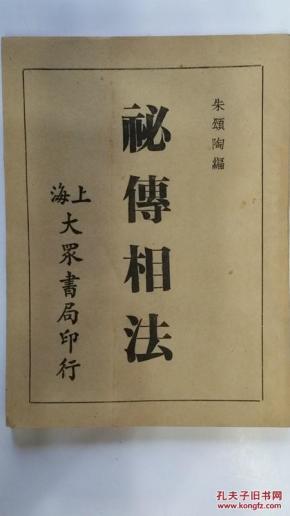 朱頌陶編
祕傳相法
上海
大眾書局印行
孔夫子旧书网
www.kongfz.com